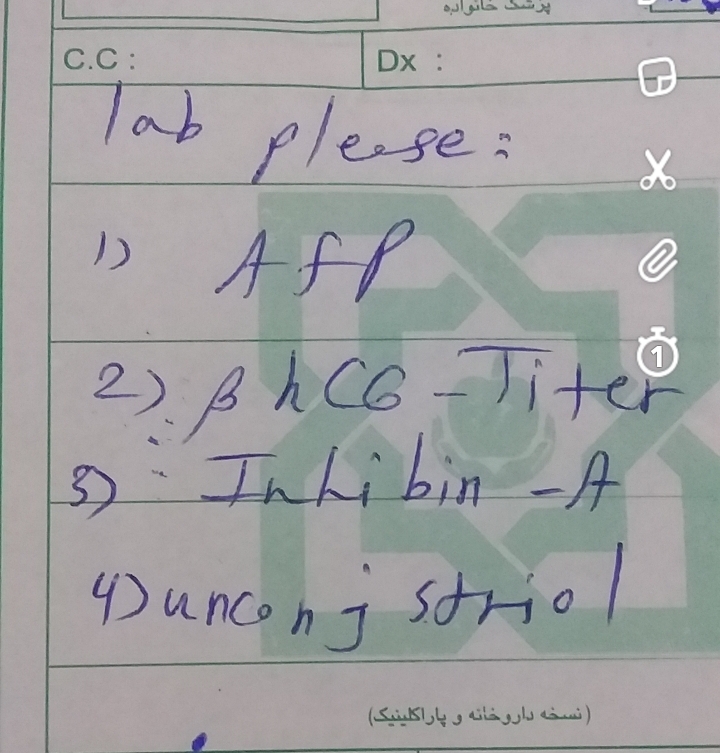 پزشک خانواده
C.C :
Dx :
lab please:
1) AfP
2) β hCG - Titer
3) Inhibin - A
4) unconj striol
(نسخه داروخانه و پاراکلینیک)
1